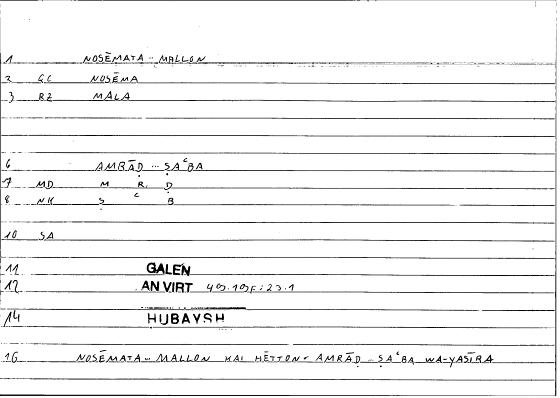 1 NOSĒMATA - MALLON
2 GC NOSĒMA
3 RZ MALA
6 AMRĀḌ ... ṢAʿBA
7 MD M R. Ḍ
8 NK Ṣ ʿ B
10 SA
11 GALEN
12 AN VIRT 40.19F:23.1
14 HUBAYSH
16 NOSĒMATA - MALLON KAI HĒTTON - AMRĀḌ - ṢAʿBA WA-YASĪRA